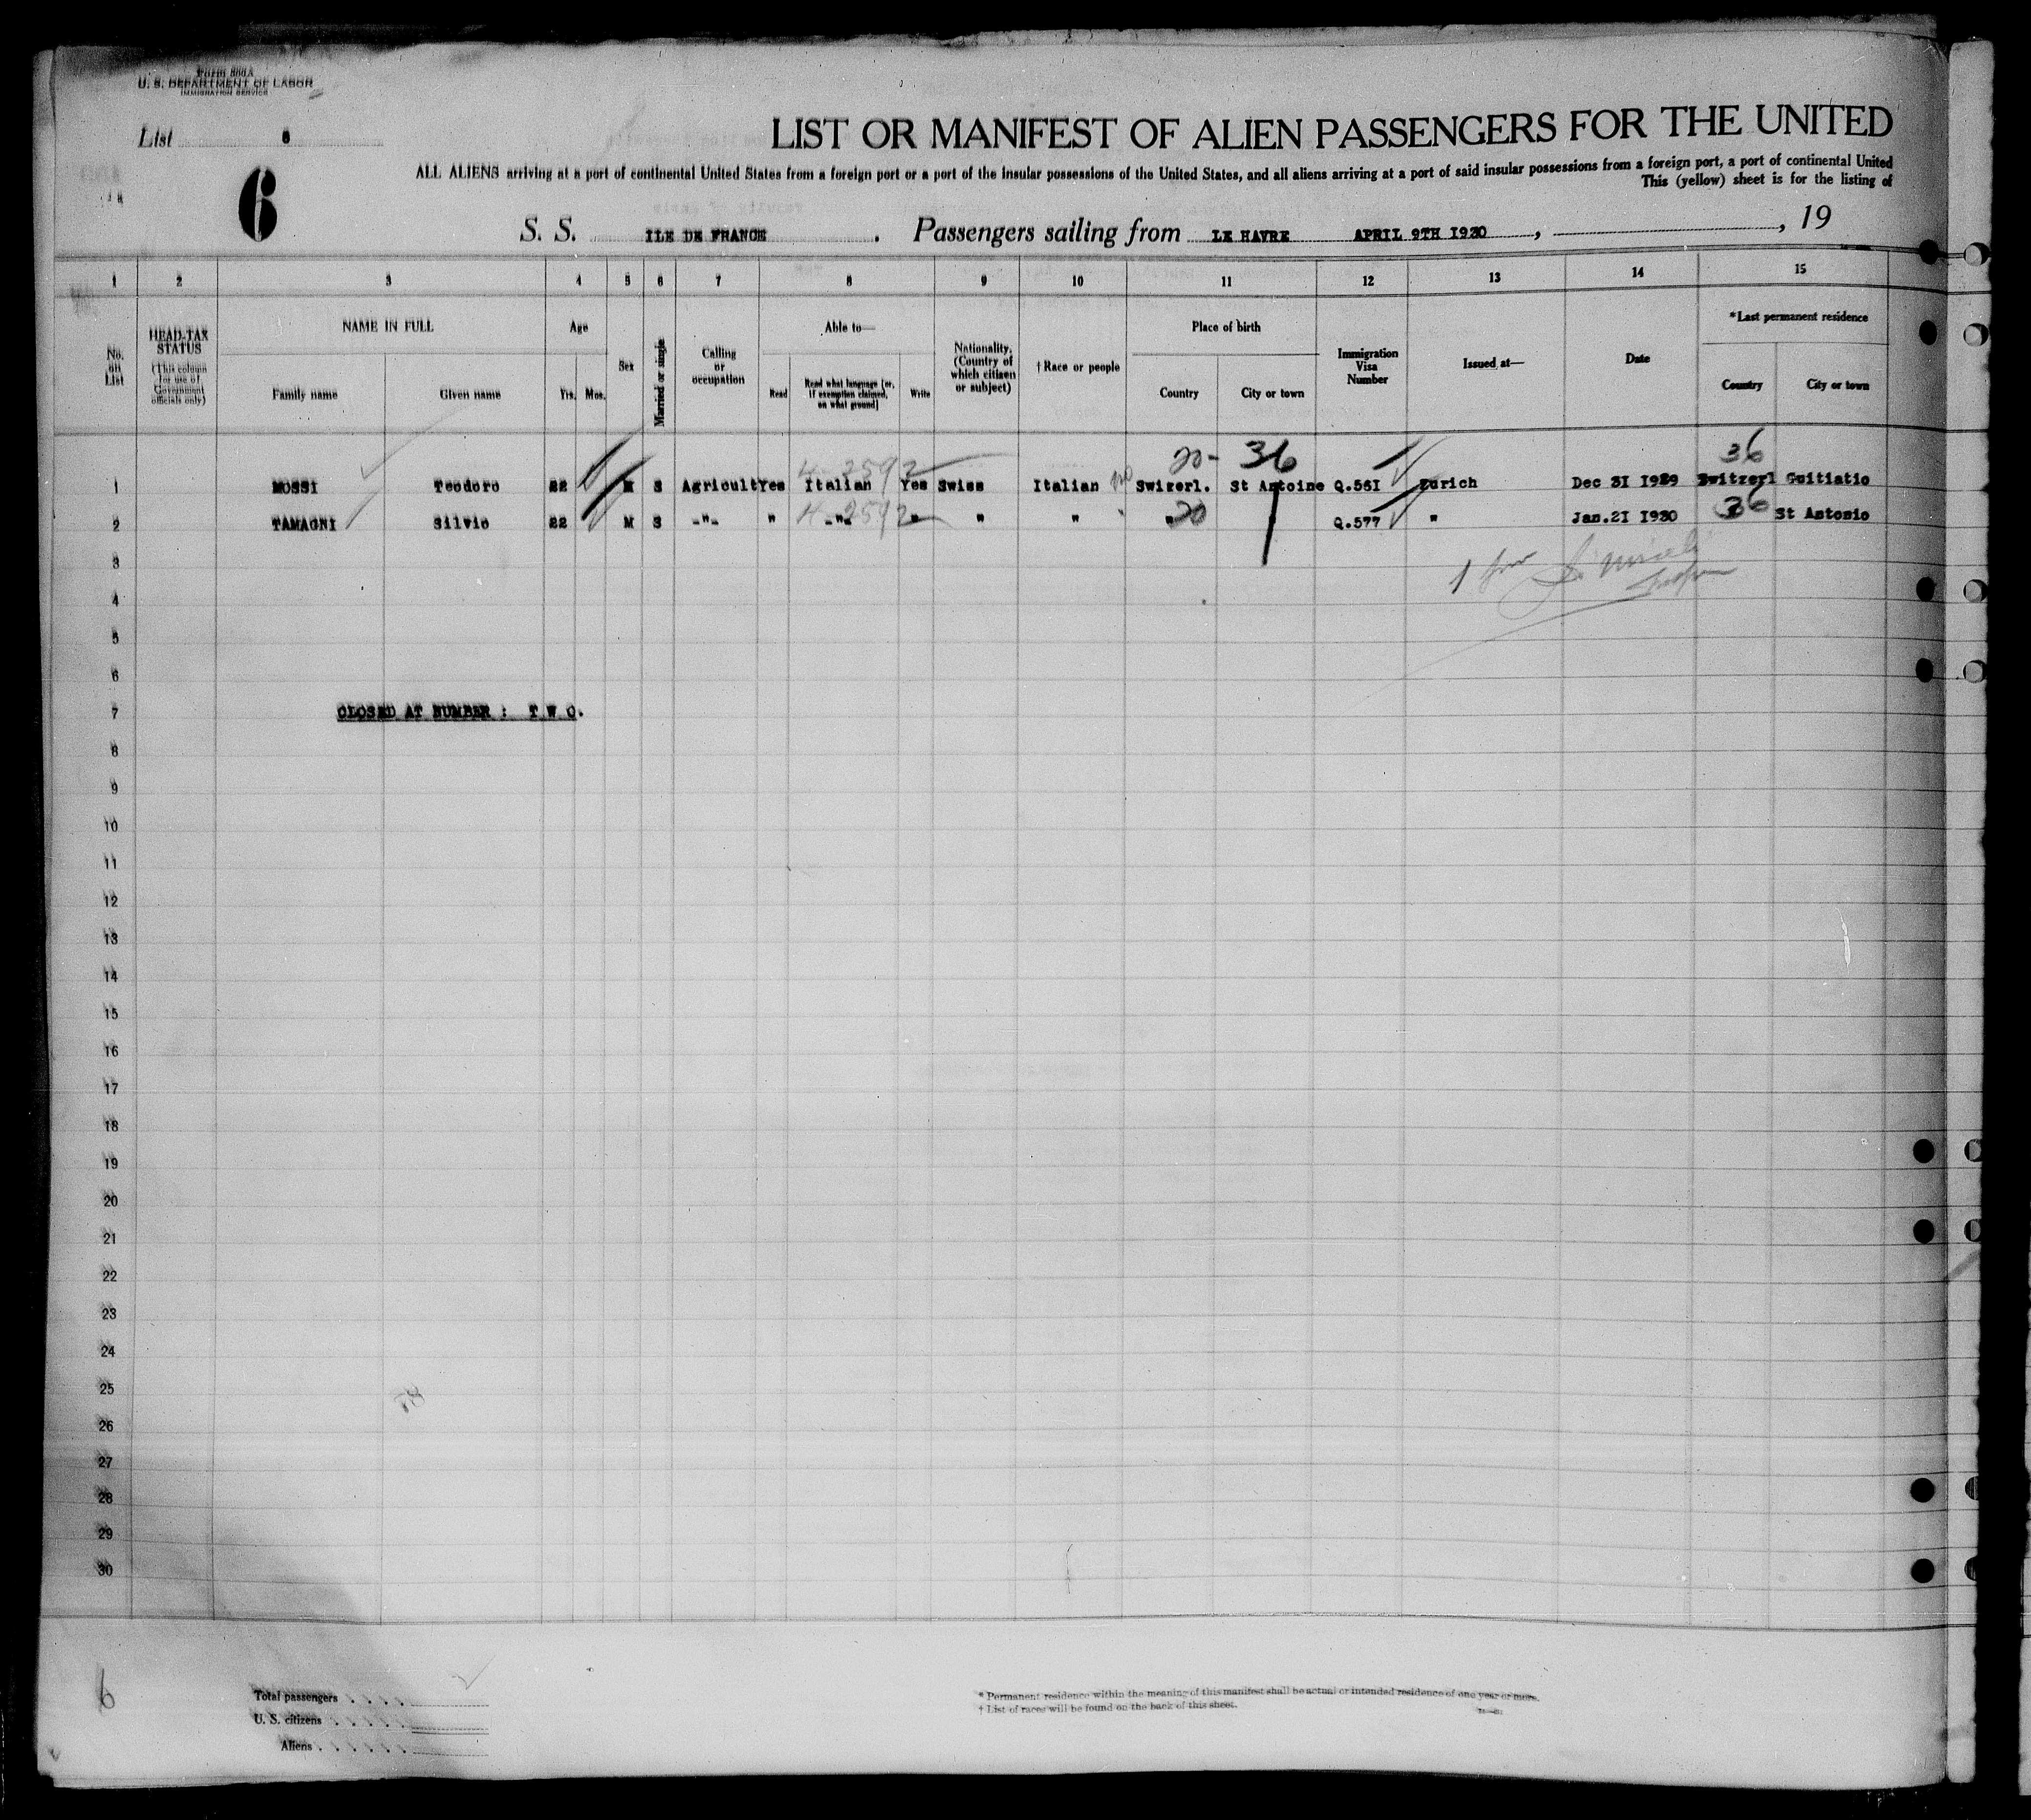 Form 500A
U. S. DEPARTMENT OF LABOR
IMMIGRATION SERVICE
List 6
6
LIST OR MANIFEST OF ALIEN PASSENGERS FOR THE UNITED
ALL ALIENS arriving at a port of continental United States from a foreign port or a port of the insular possessions of the United States, and all aliens arriving at a port of said insular possessions from a foreign port, a port of continental United
This (yellow) sheet is for the listing of
S. S. ILE DE FRANCE . Passengers sailing from LE HAVRE APRIL 9TH I930 , , 19
1 2 3 4 5 6 7 8 9 10 11 12 13 14 15
No. on List
HEAD-TAX STATUS (This column for use of Government officials only)
NAME IN FULL
Family name Given name
Age
Yrs. Mos.
Sex
Married or single
Calling or occupation
Able to—
Read Read what language [or, if exemption claimed, on what ground] Write
Nationality. (Country of which citizen or subject)
† Race or people
Place of birth
Country City or town
Immigration Visa Number
Issued at—
Date
*Last permanent residence
Country City or town
4-2592 20- 36 36
1 MOSSI Teodoro 22 M S Agricult Yes Italian Yes Swiss Italian Swizerl. St Antoine Q.56I Zurich Dec 3I I929 Switzerl Guitiatio
4-2592 20 36
2 TAMAGNI Silvio 22 M S -"- " -"- " " " " " Q.577 " Jan.2I I930 St Antonio
3
4
5
6
7 CLOSED AT NUMBER : T W O.
8
9
10
11
12
13
14
15
16
17
18
19
20
21
22
23
24
25
26
27
28
29
30
6
Total passengers . . . .
U. S. citizens . . . . . .
Aliens . . . . . .
* Permanent residence within the meaning of this manifest shall be actual or intended residence of one year or more.
† List of races will be found on the back of this sheet.